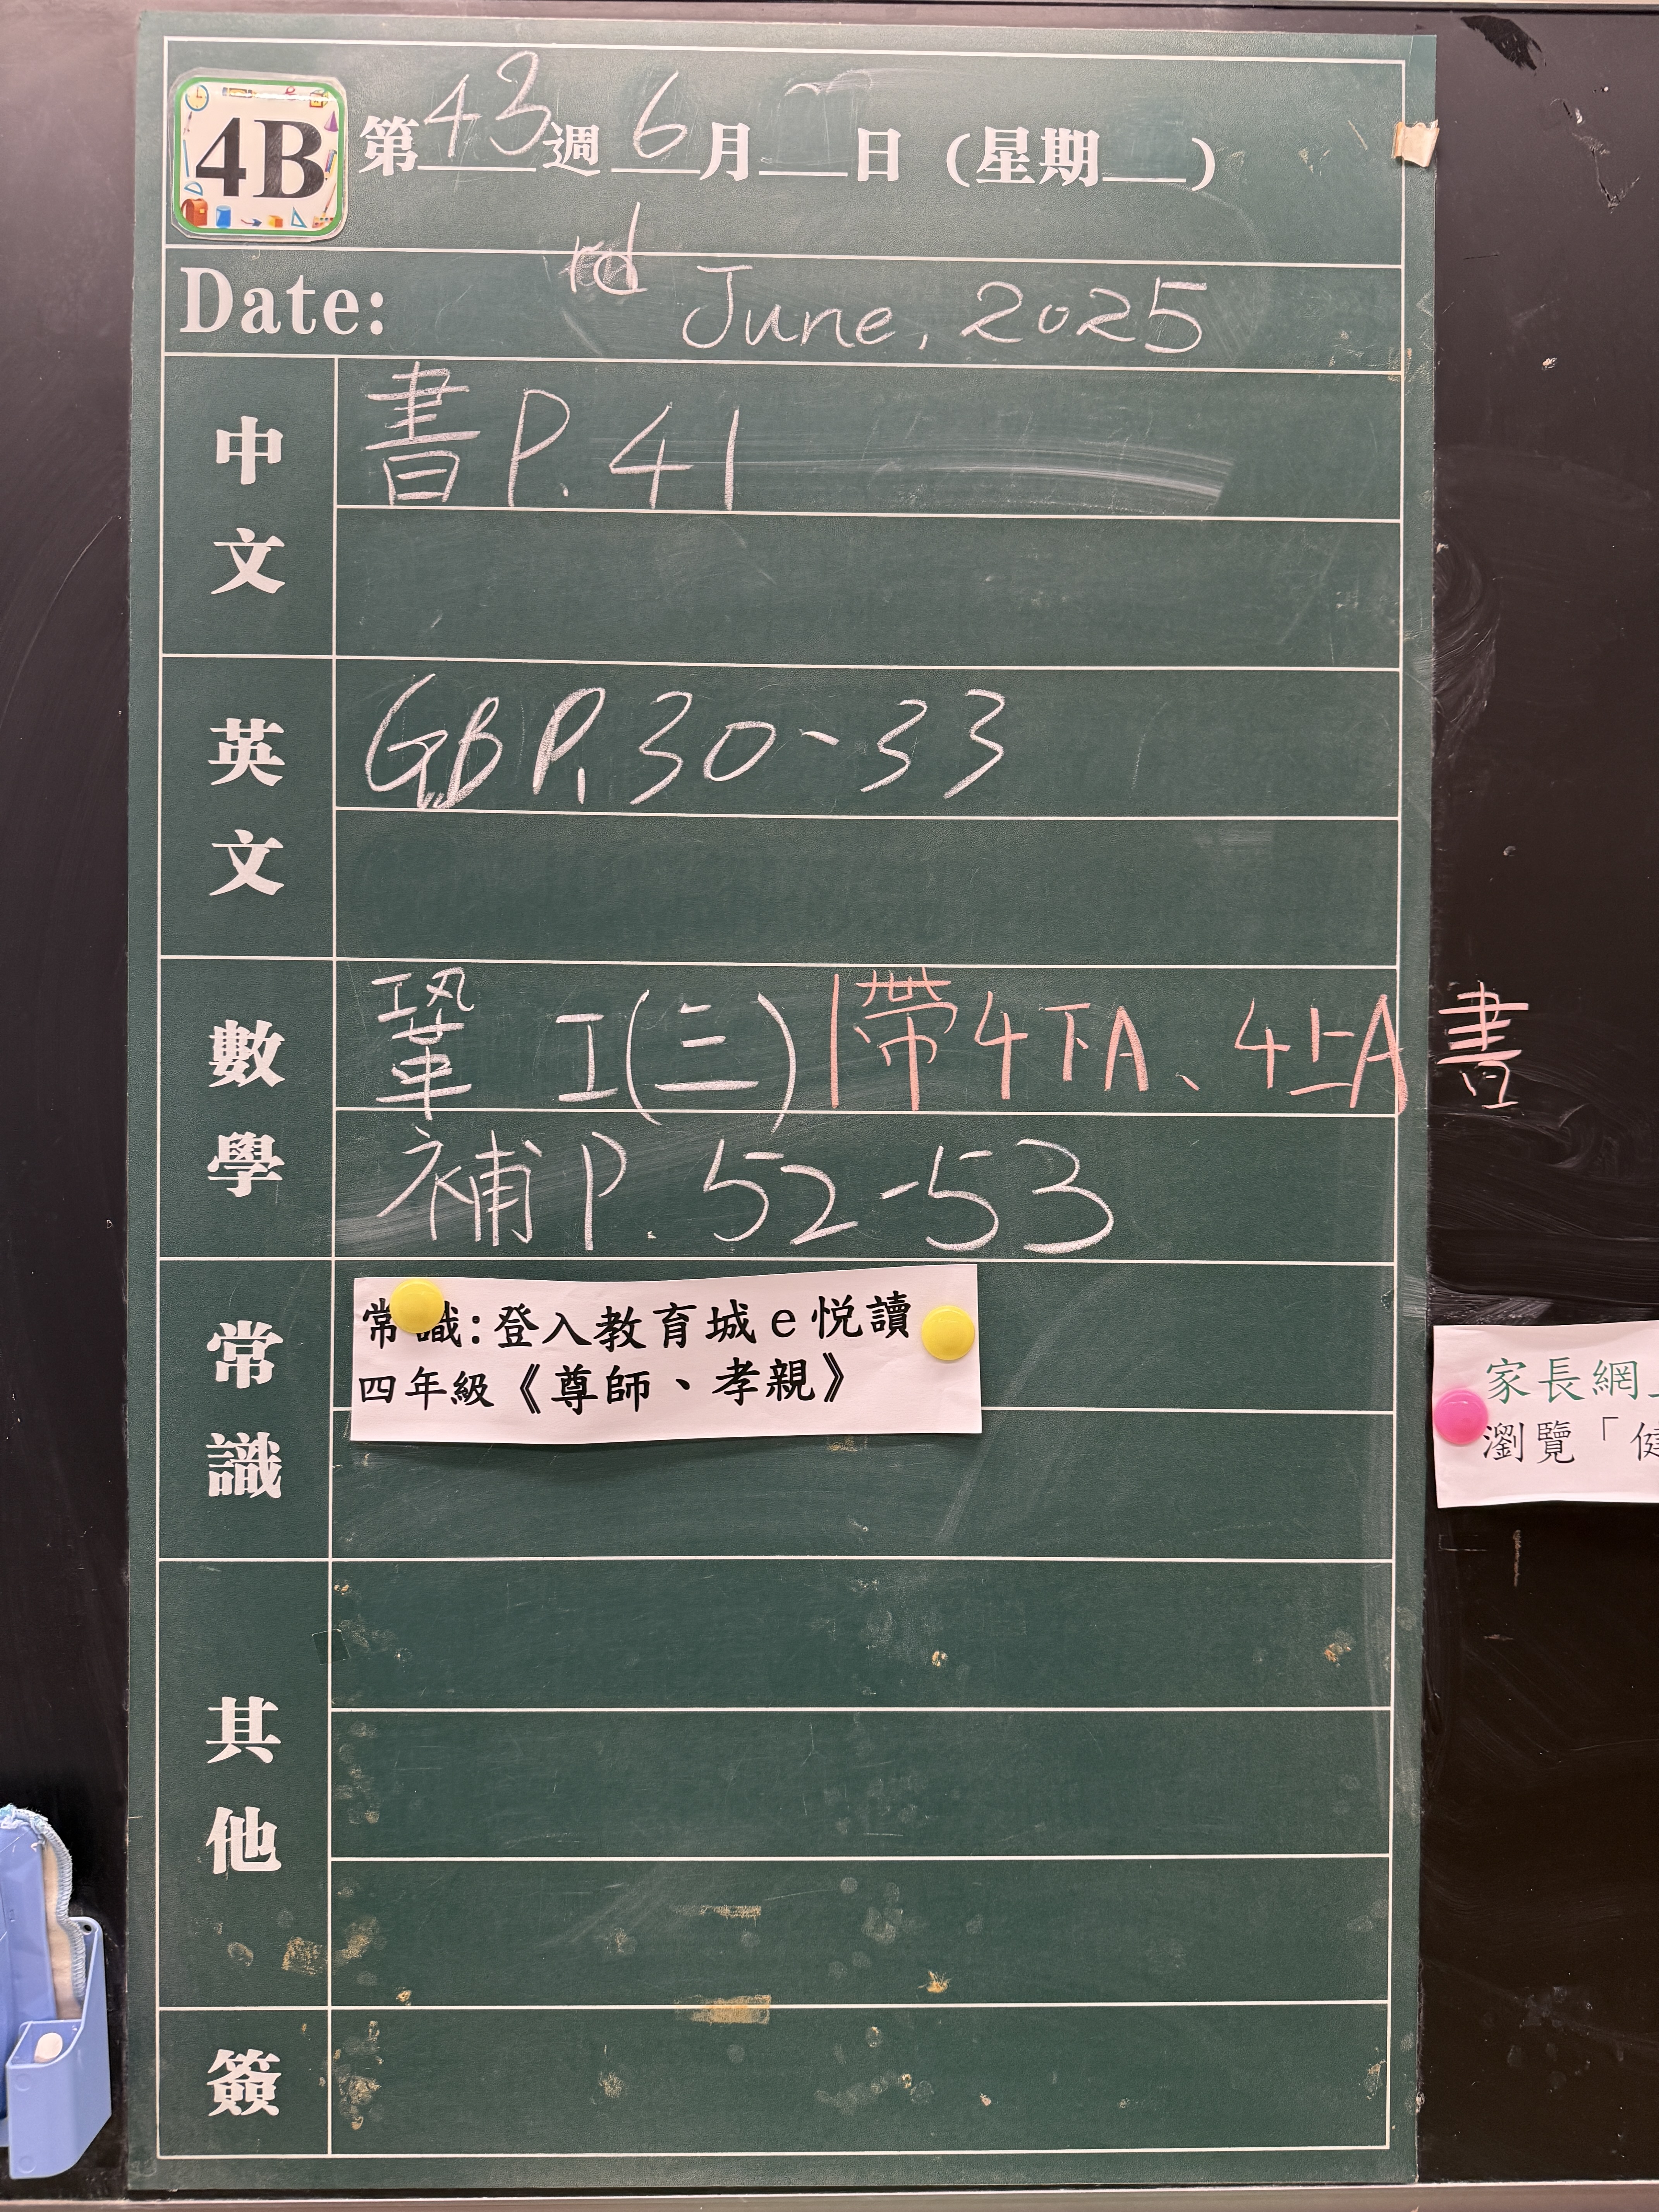 4B
第43週 6月 日 (星期 )
rd
Date: June, 2025
中文
書 P. 41
英文
GB P. 30-33
數學
鞏 工(三) 帶4下A、4上A書
補 P. 52-53
常識
常識:登入教育城e悅讀
四年級《尊師、孝親》
家長網
瀏覽「健
其他
簽